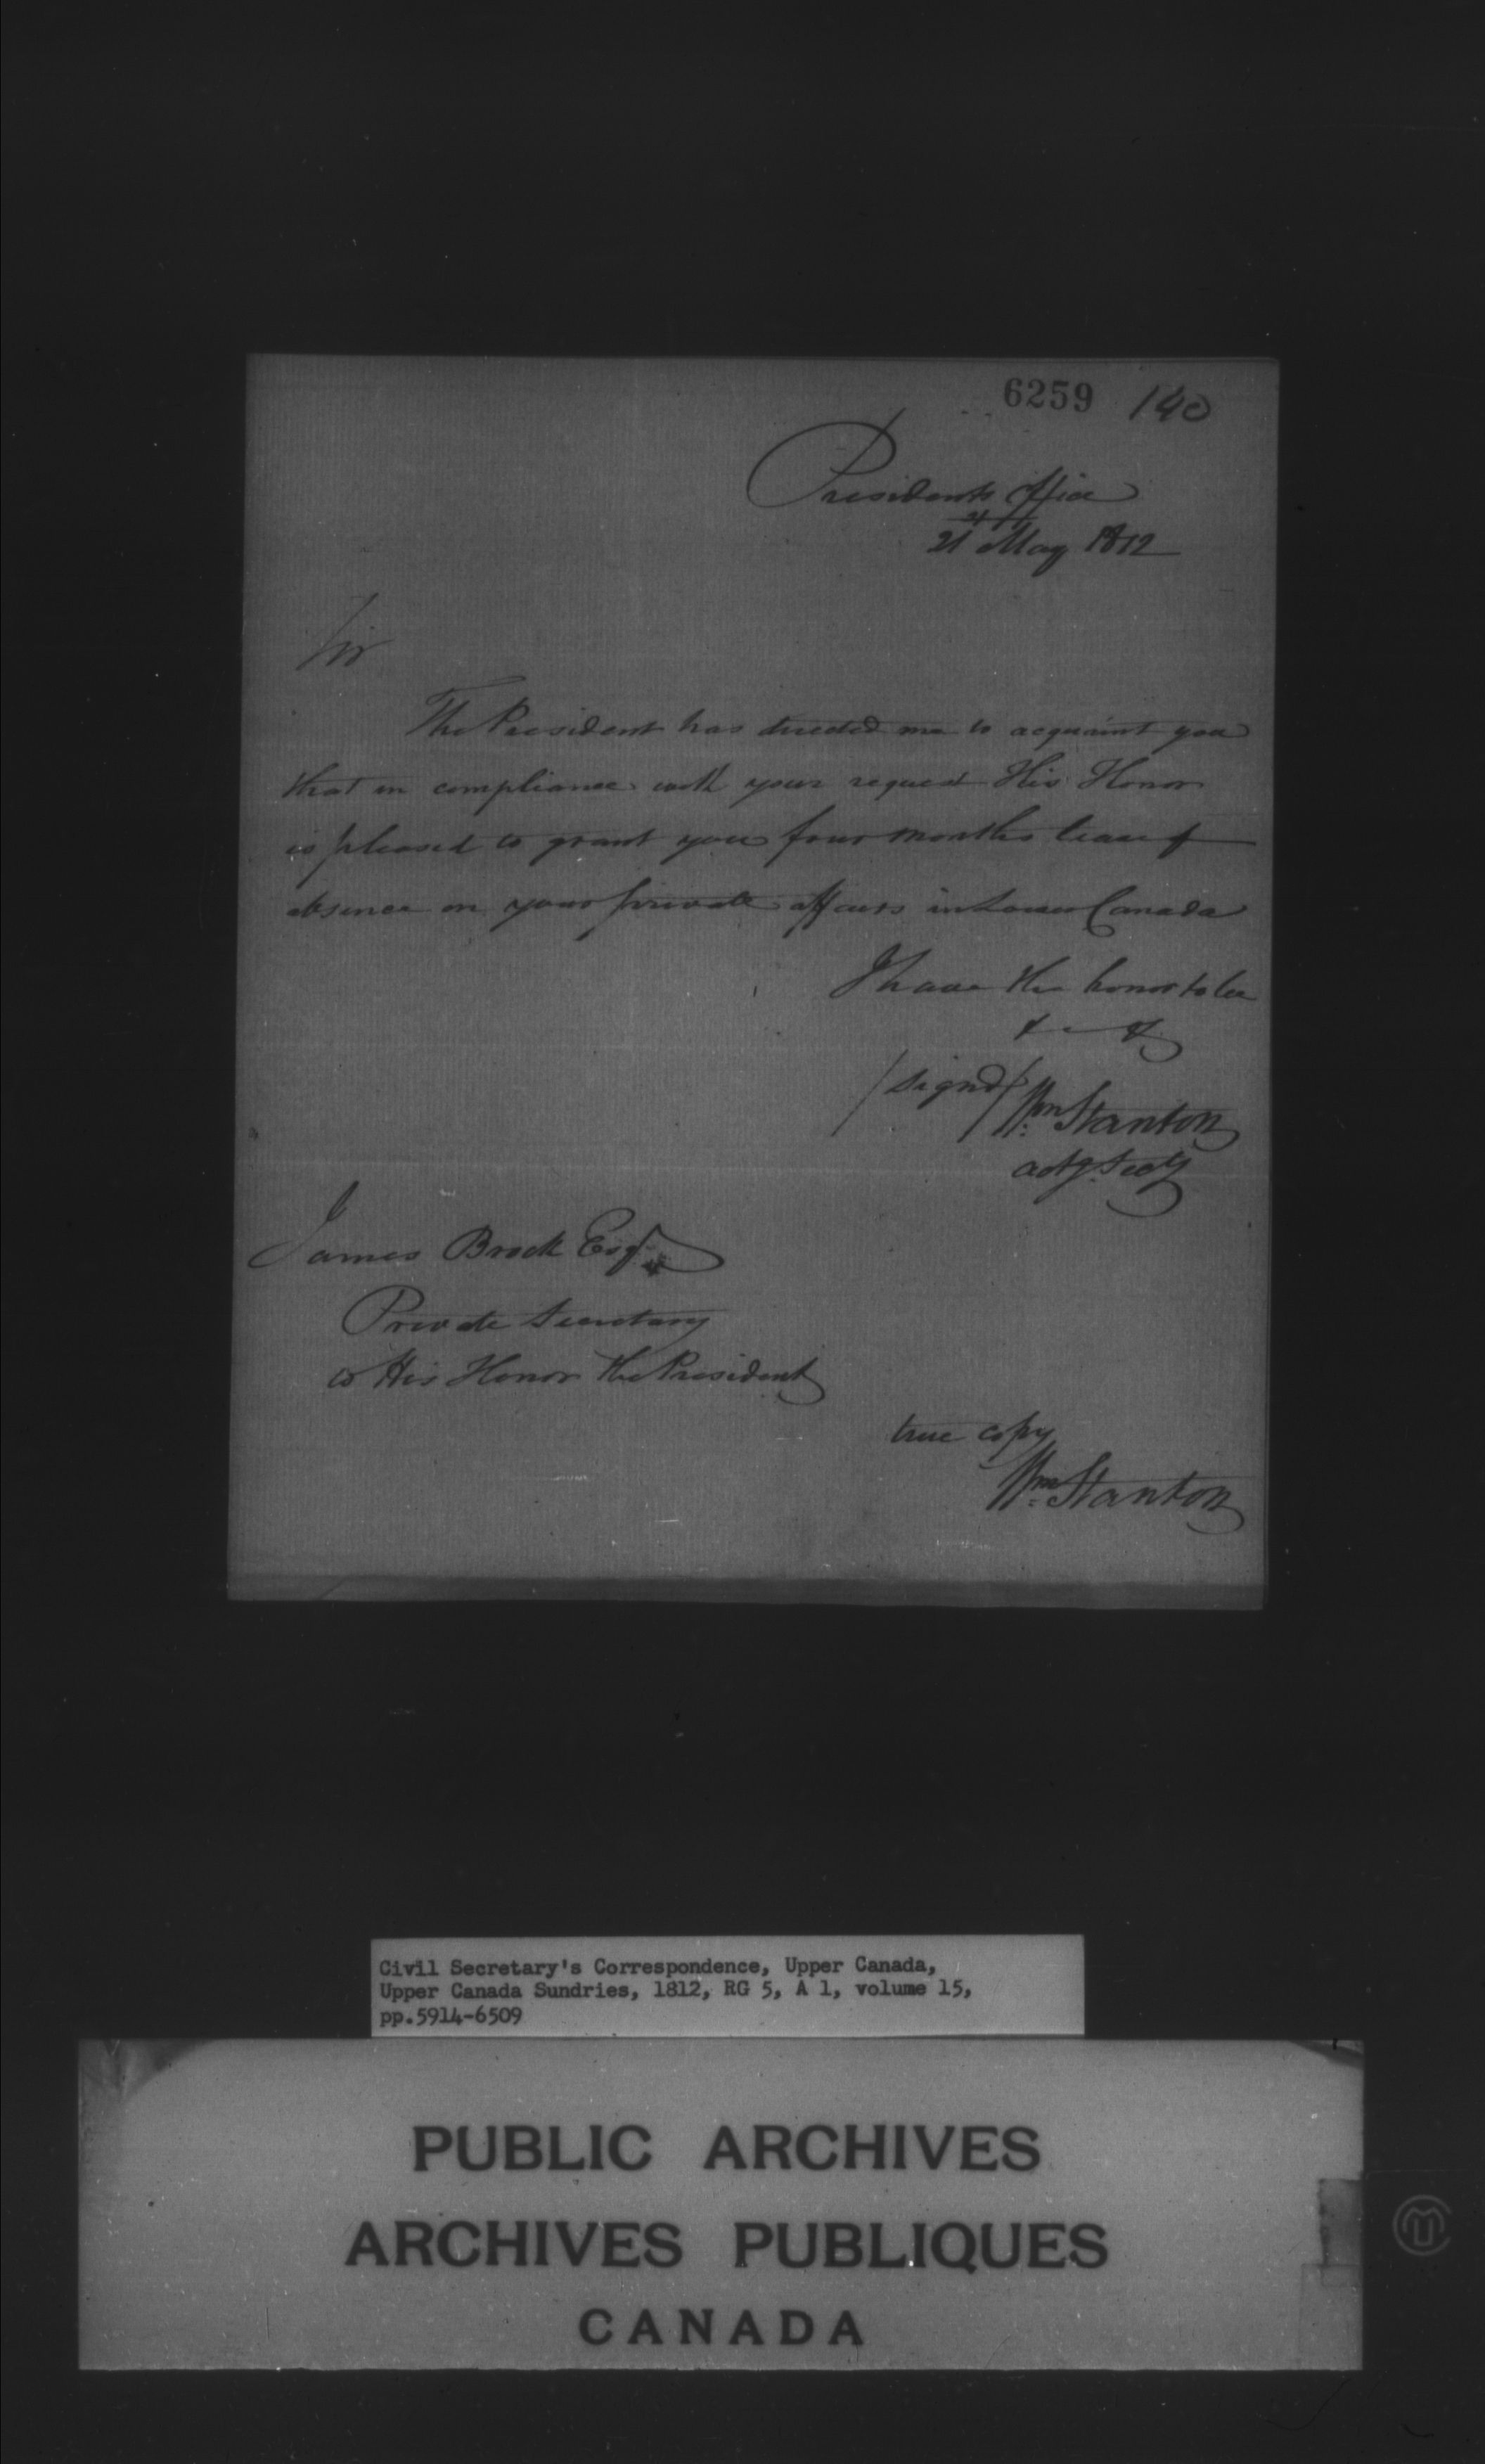 6259 140
Presidents Office
21st May 1812
Sir
The President has directed me to acquaint you
that in compliance with your request His Honor
is pleased to grant you four months leave of
absence on your private affairs in Lower Canada
I have the honor to be
&c &c
/signd/ Wm Stanton
actg. Secy
James Brock Esqr
Private Secretary
to His Honor the President
true copy
Wm Stanton
Civil Secretary's Correspondence, Upper Canada,
Upper Canada Sundries, 1812, RG 5, A 1, volume 15,
pp.5914-6509
PUBLIC ARCHIVES
ARCHIVES PUBLIQUES
CANADA